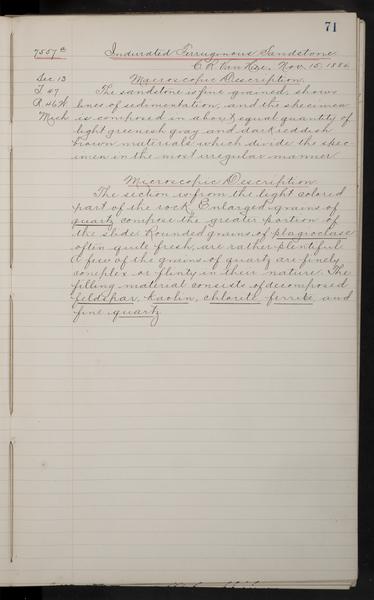 71
7557 c Indurated Ferrugonous Sandstone
C. R. Van Hise, Nov. 15, 1886
Sec. 13 Macroscopic Description.
T 47 The sandstone is fine grained, shows
R. 46 W. lines of sedimentation, and the specimen
Mich is composed in about equal quantity of
light greenish gray and dark reddish
brown materials which divide the spec
imen in the most irregular manner
Microscopic Description
The section is from the light colored
part of the rock. Enlarged grains of
quartz compose the greater portion of
the slide. Rounded grains of plagioclase
often quite fresh, are rather plentiful
A few of the grains of quartz are finely
complex or flinty in their nature. The
filling material consists of decomposed
feldspar, kaolin, chlorite, ferrite, and
fine quartz.